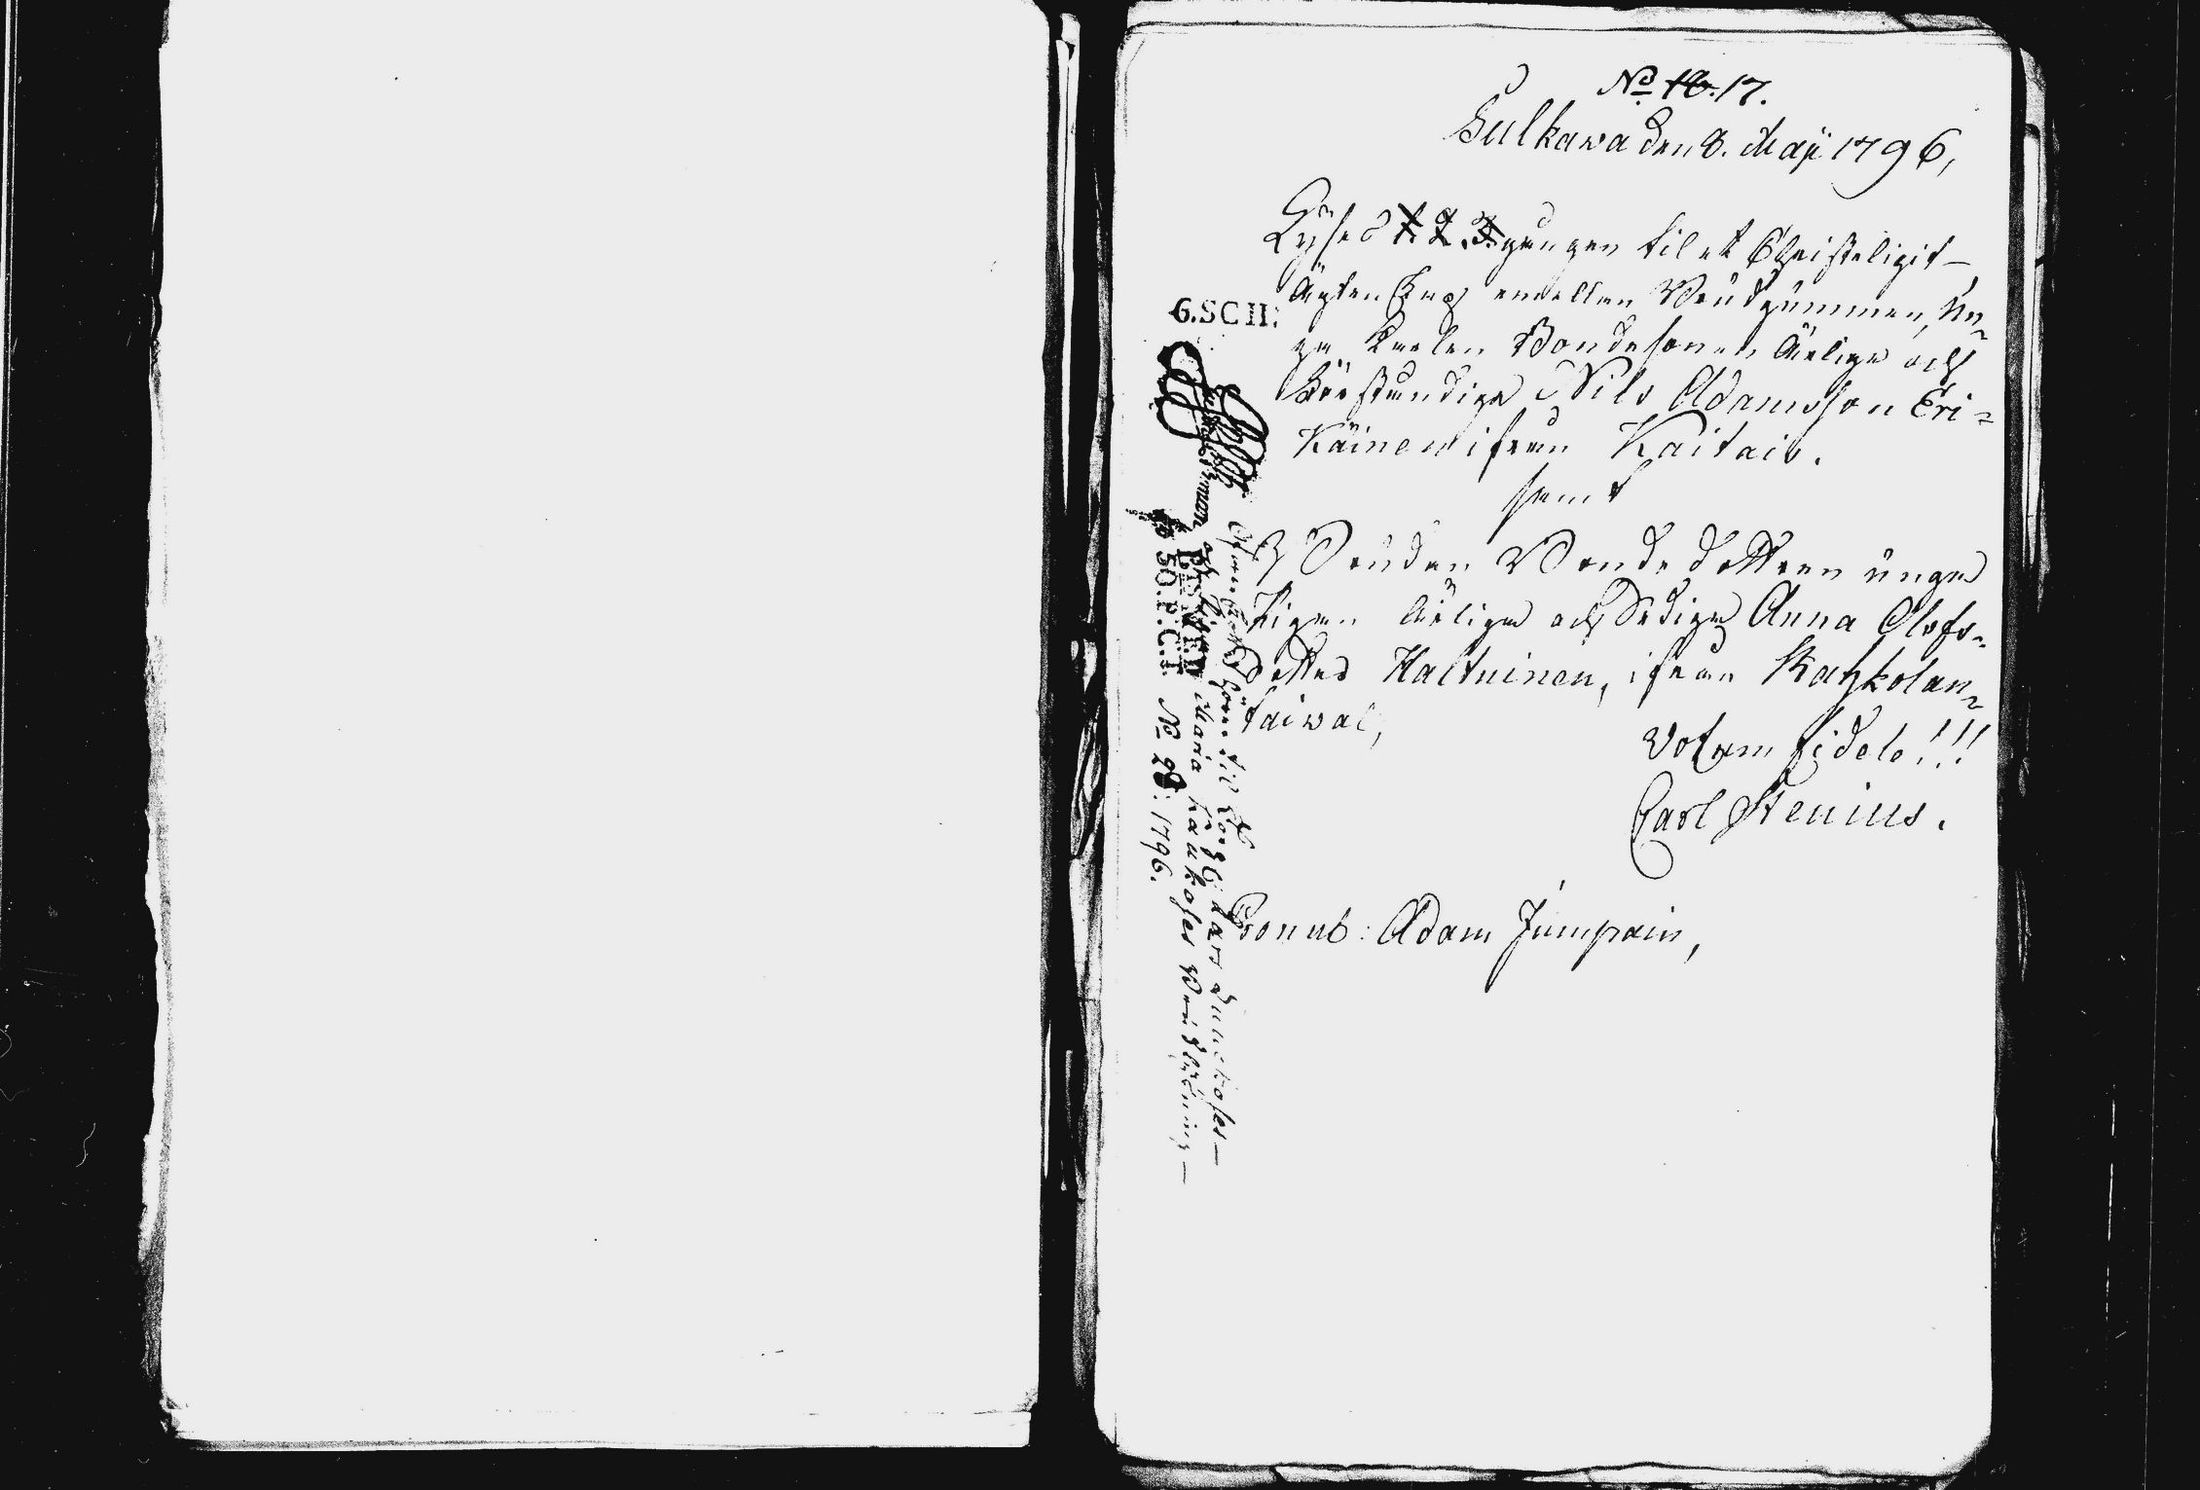 No 16. 17.
Sulkawa den 8. Maji 1796,
Lyses 1. 2. 3. gången til et Christeligit
Ägtenskap emellan Brudgummen, Un-
ga Karlen Bondesonen Ärlige och
Förståndige Nils Adamsson Eri-
käinen ifrån Kaitais.
samt
Bruden Bondedottren unga
Pigan Ärliga och Sediga Anna Olofs-
dotter Haltuinen, ifrån Kaskolan-
taiwal,
Votum fidele!!!
Carl Stenius.
Pronub: Adam Jumpain,
G.SCH:
til
Lars
Maria Kaukoses
50.P.C.T. No 28: 1796.